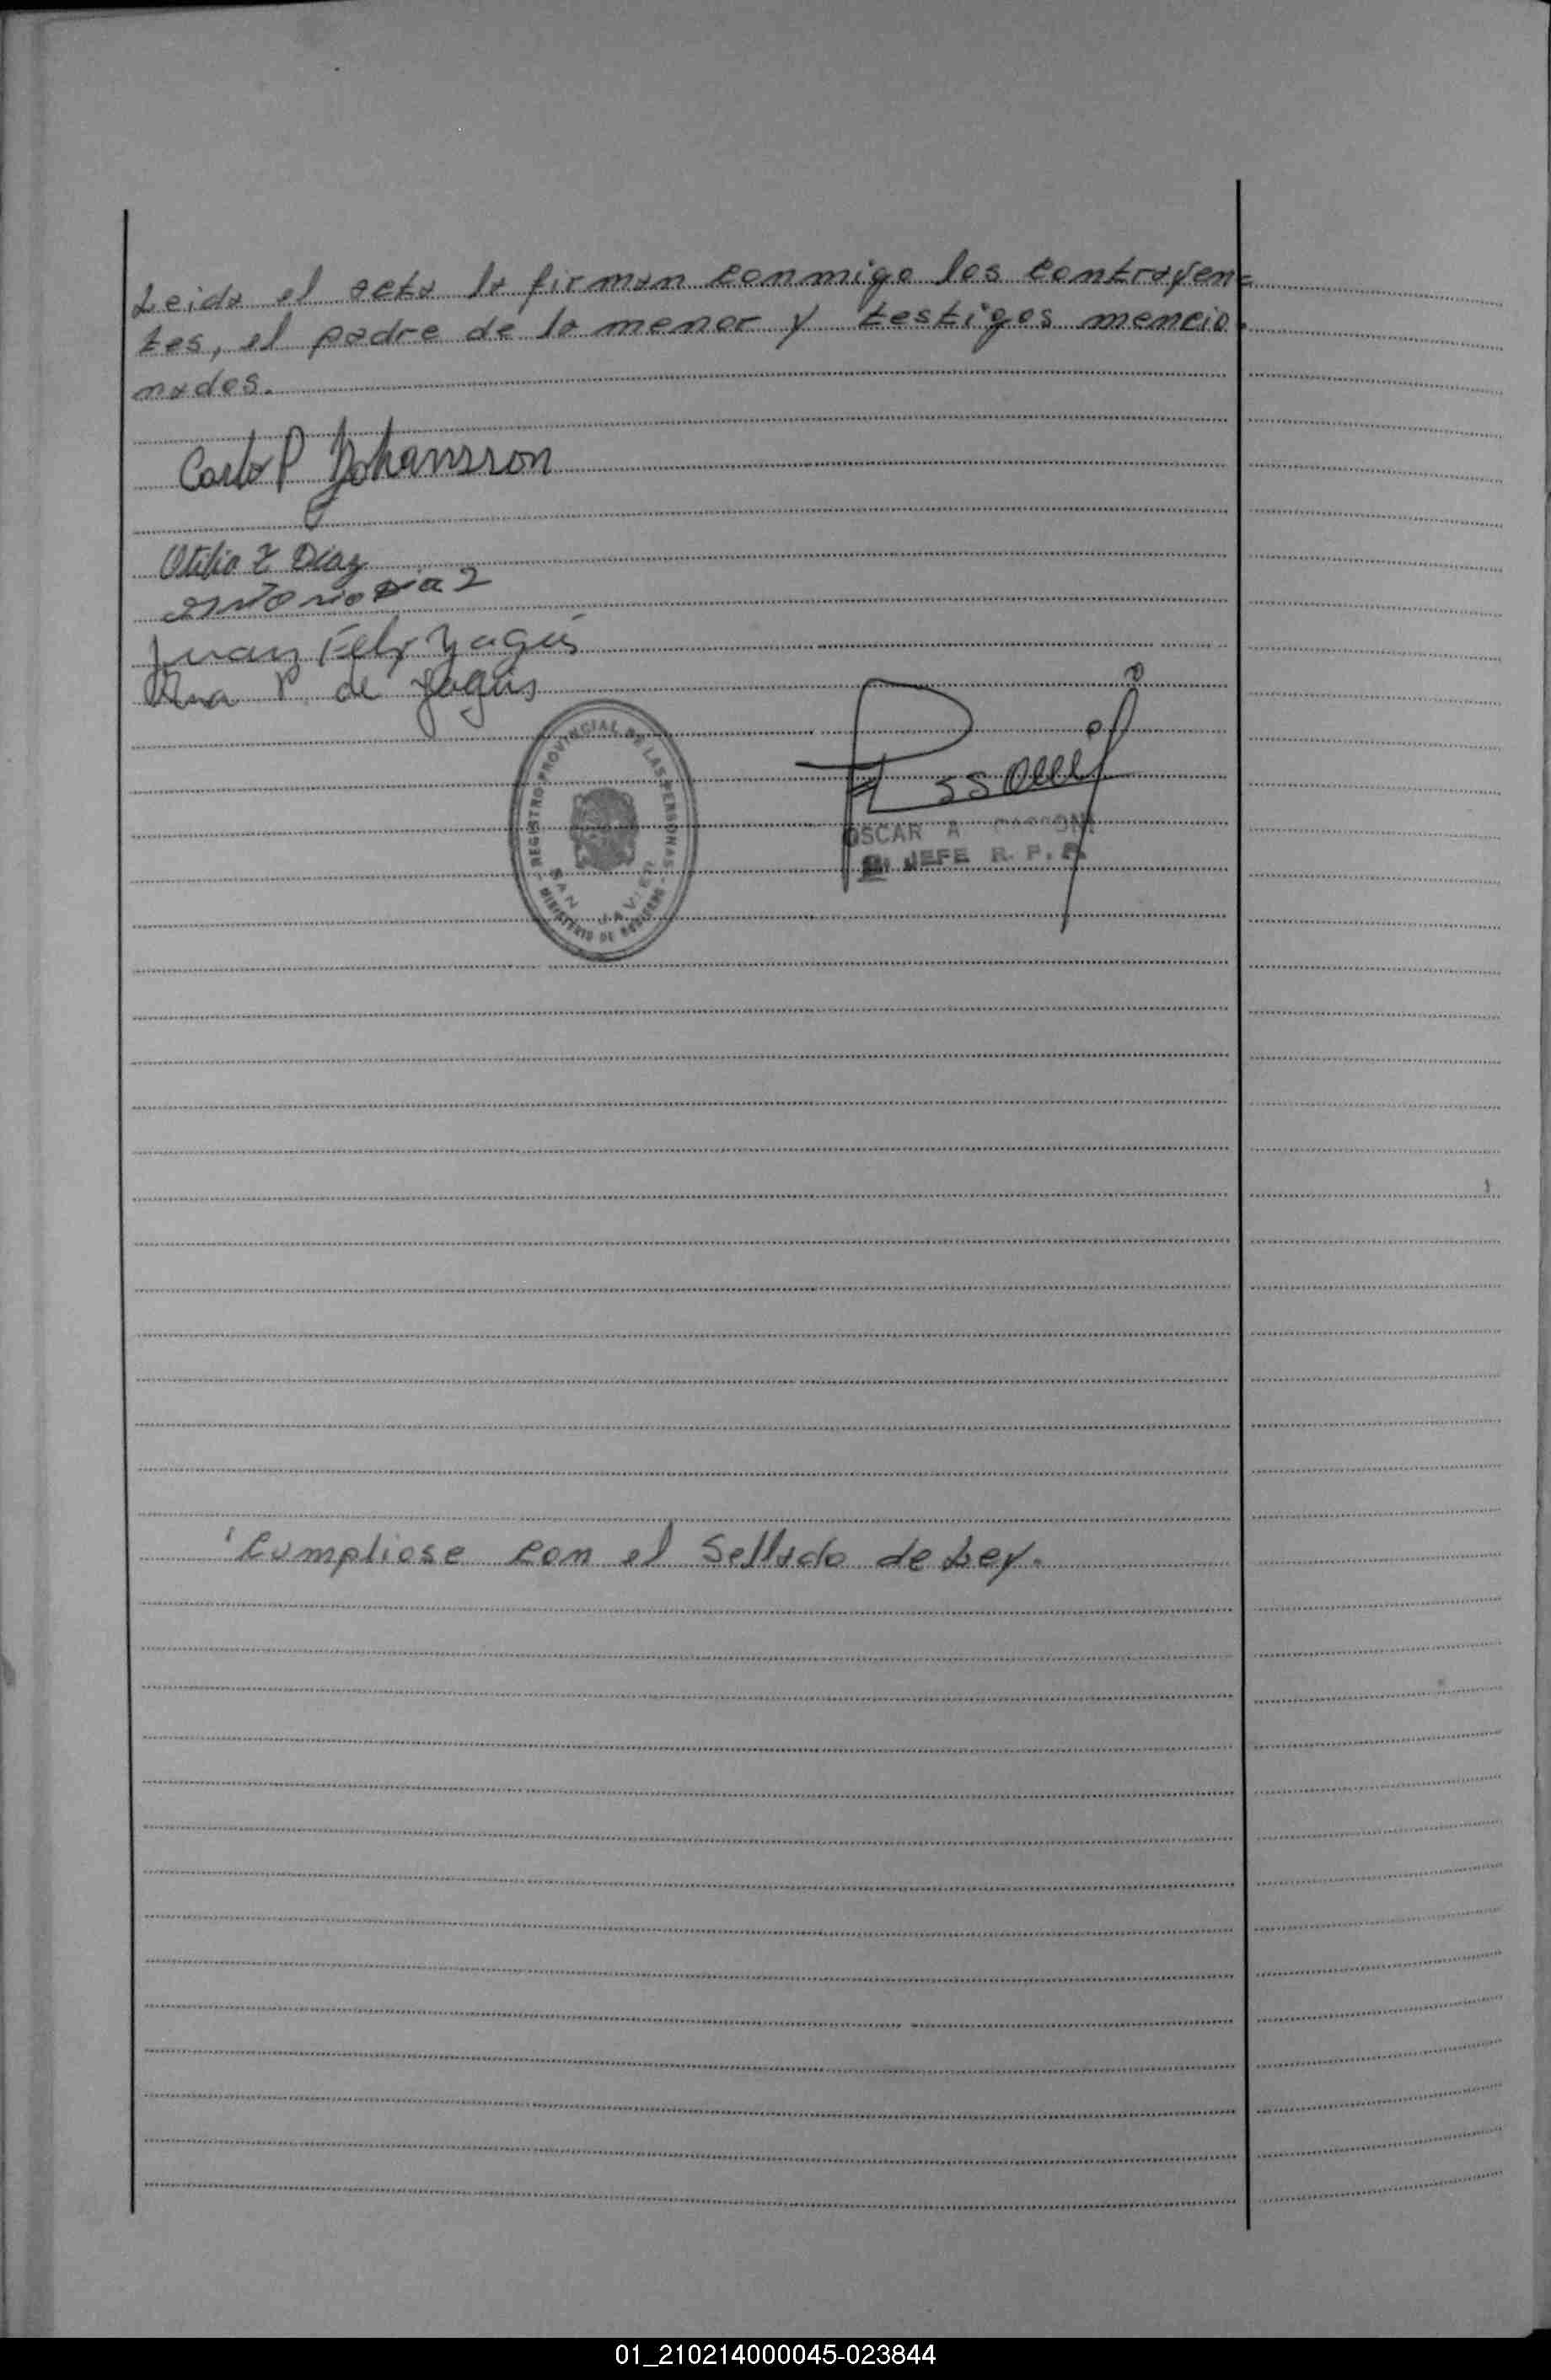 Leida el acta la firman conmigo los contrayen=
tes, el padre de la menor y testigos mencio
nados.
Carlos P Johansson
Otilia Z Diaz
Antonio Diaz
Juan Felix Yagüs
Ana P. de Yagüs
REGISTRO PROVINCIAL DE LAS PERSONAS
SAN JAVIER
MINISTERIO DE GOBIERNO
OSCAR A
JEFE R. P. P.
Cumpliose con el Sellado de Ley.
01_210214000045-023844